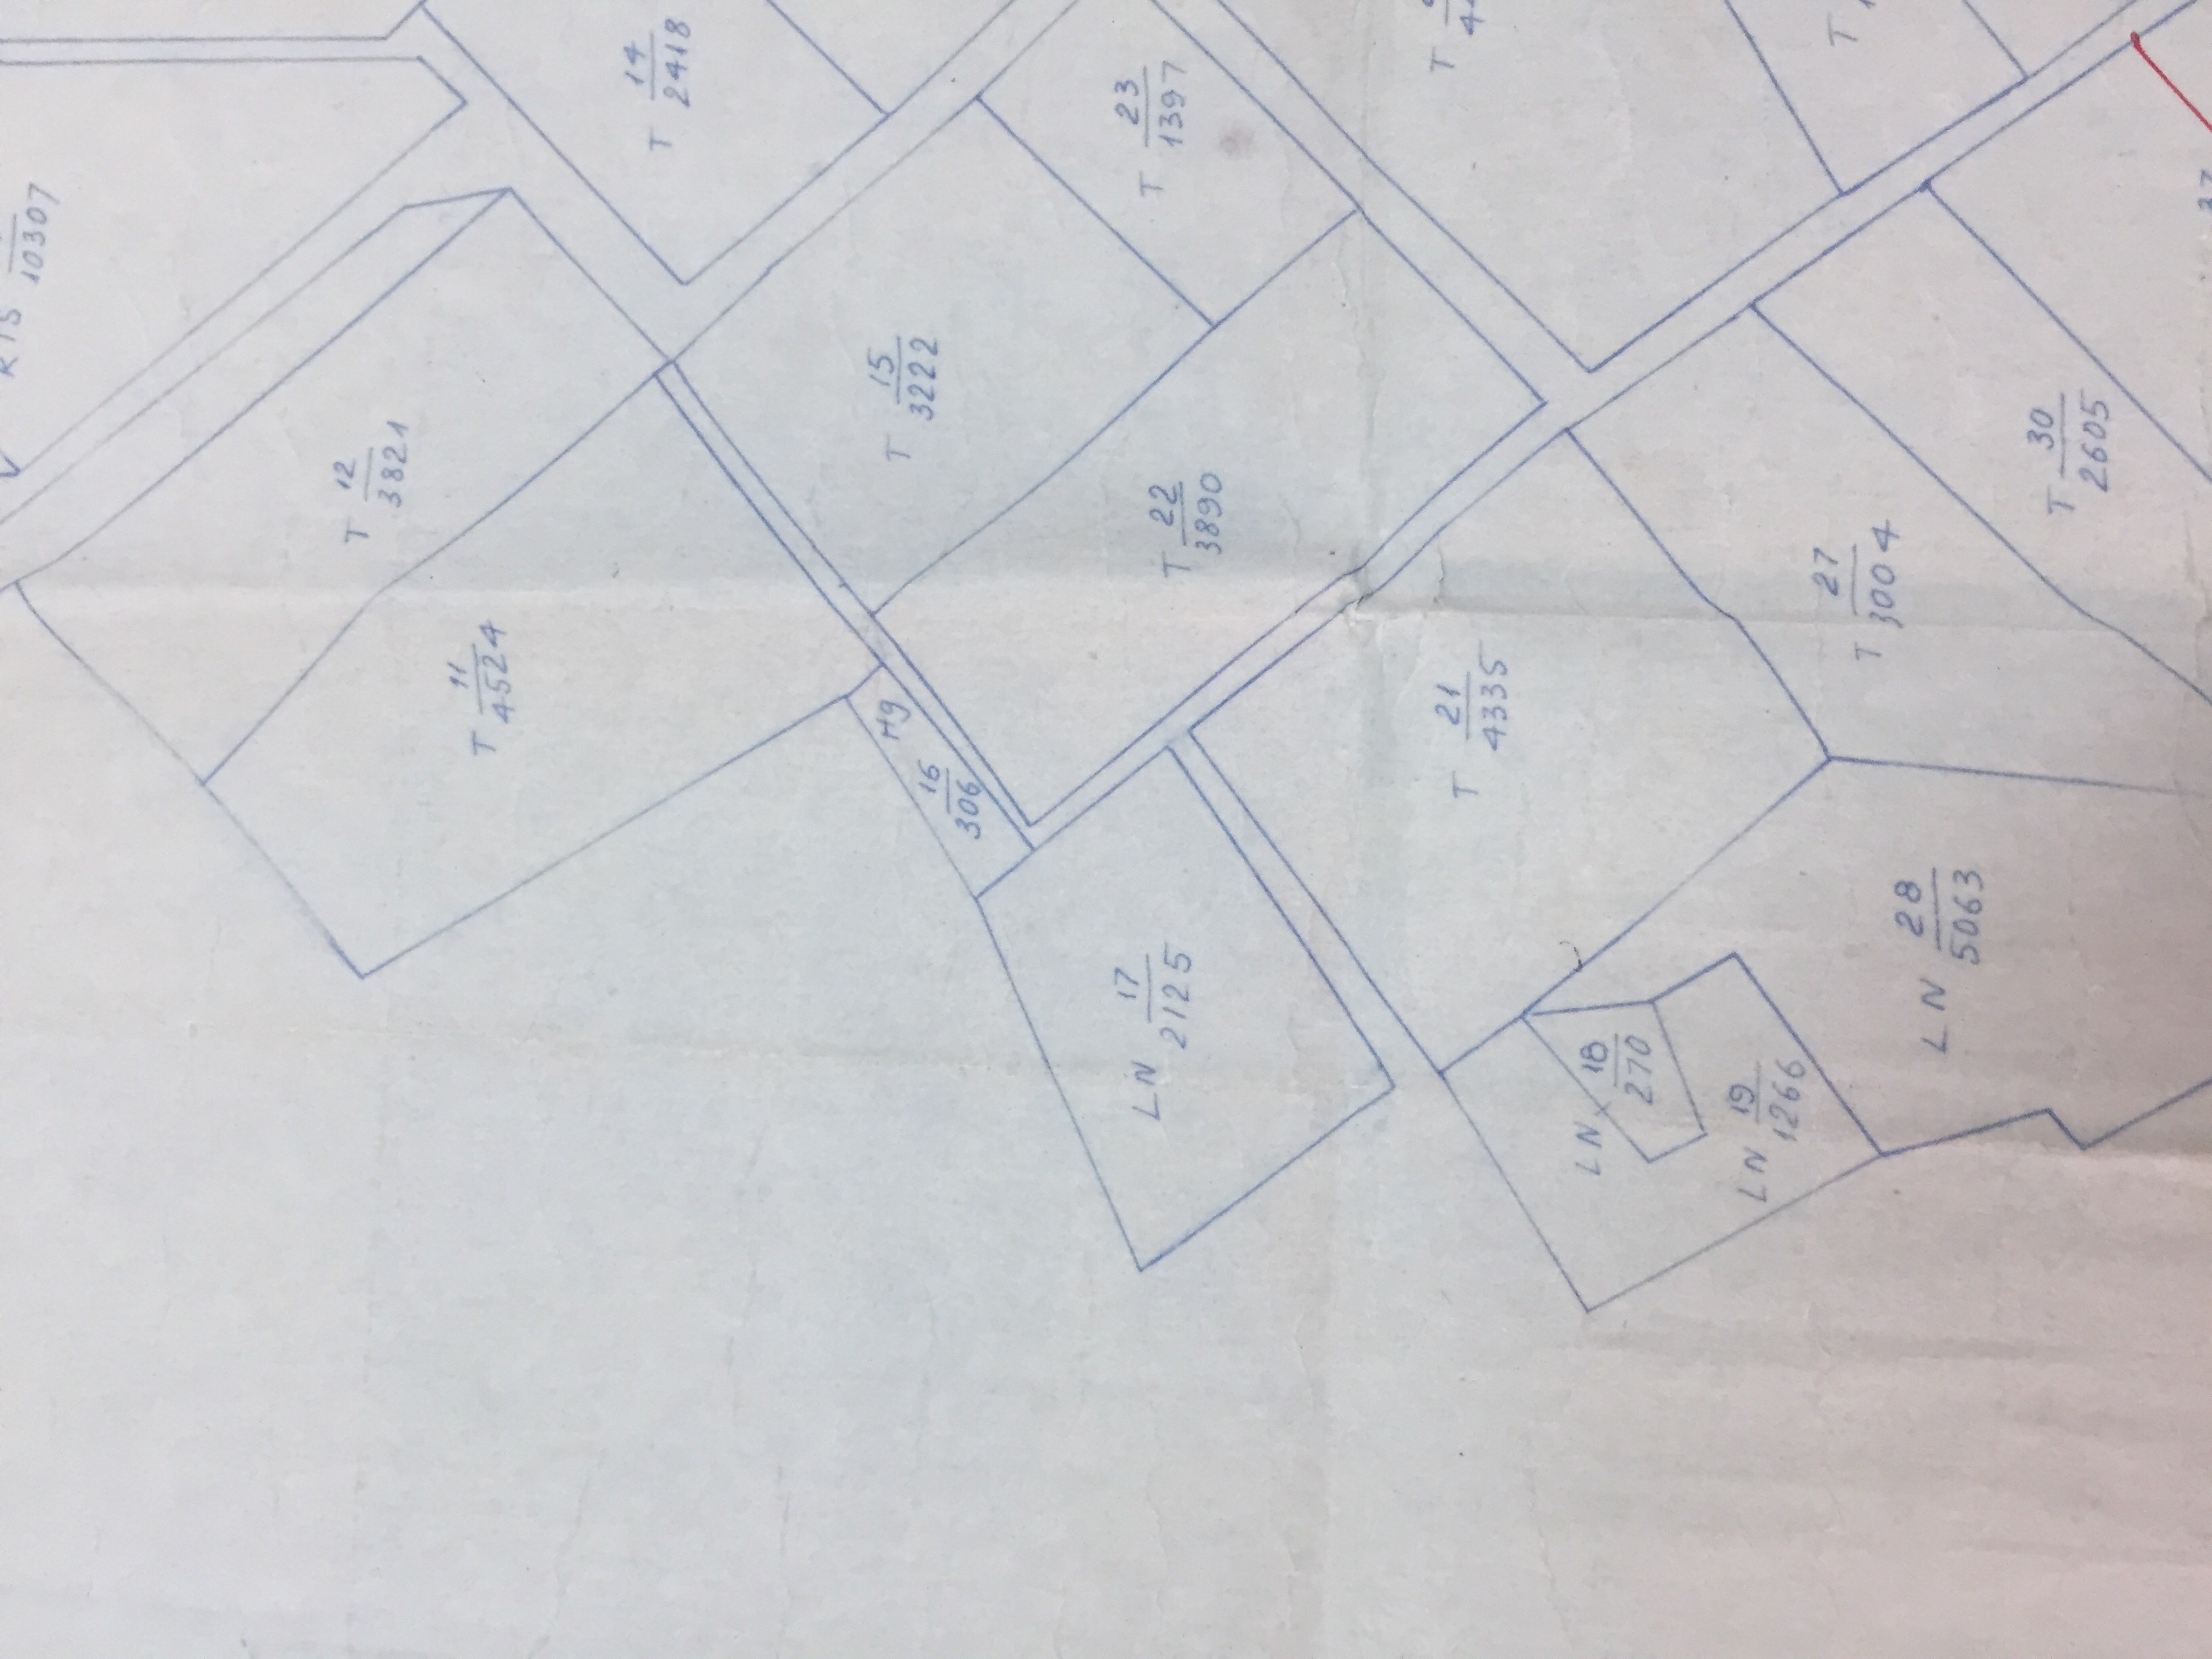 RTS
10307
T 12
3821
T 11
4524
T 14
2418
Hg
16
306
T 15
3222
LN 17
2125
T 22
3890
T 23
1397
T 21
4335
T
LN 18
270
LN 19
1266
T 27
3004
T
LN 28
5063
T 30
2605
37